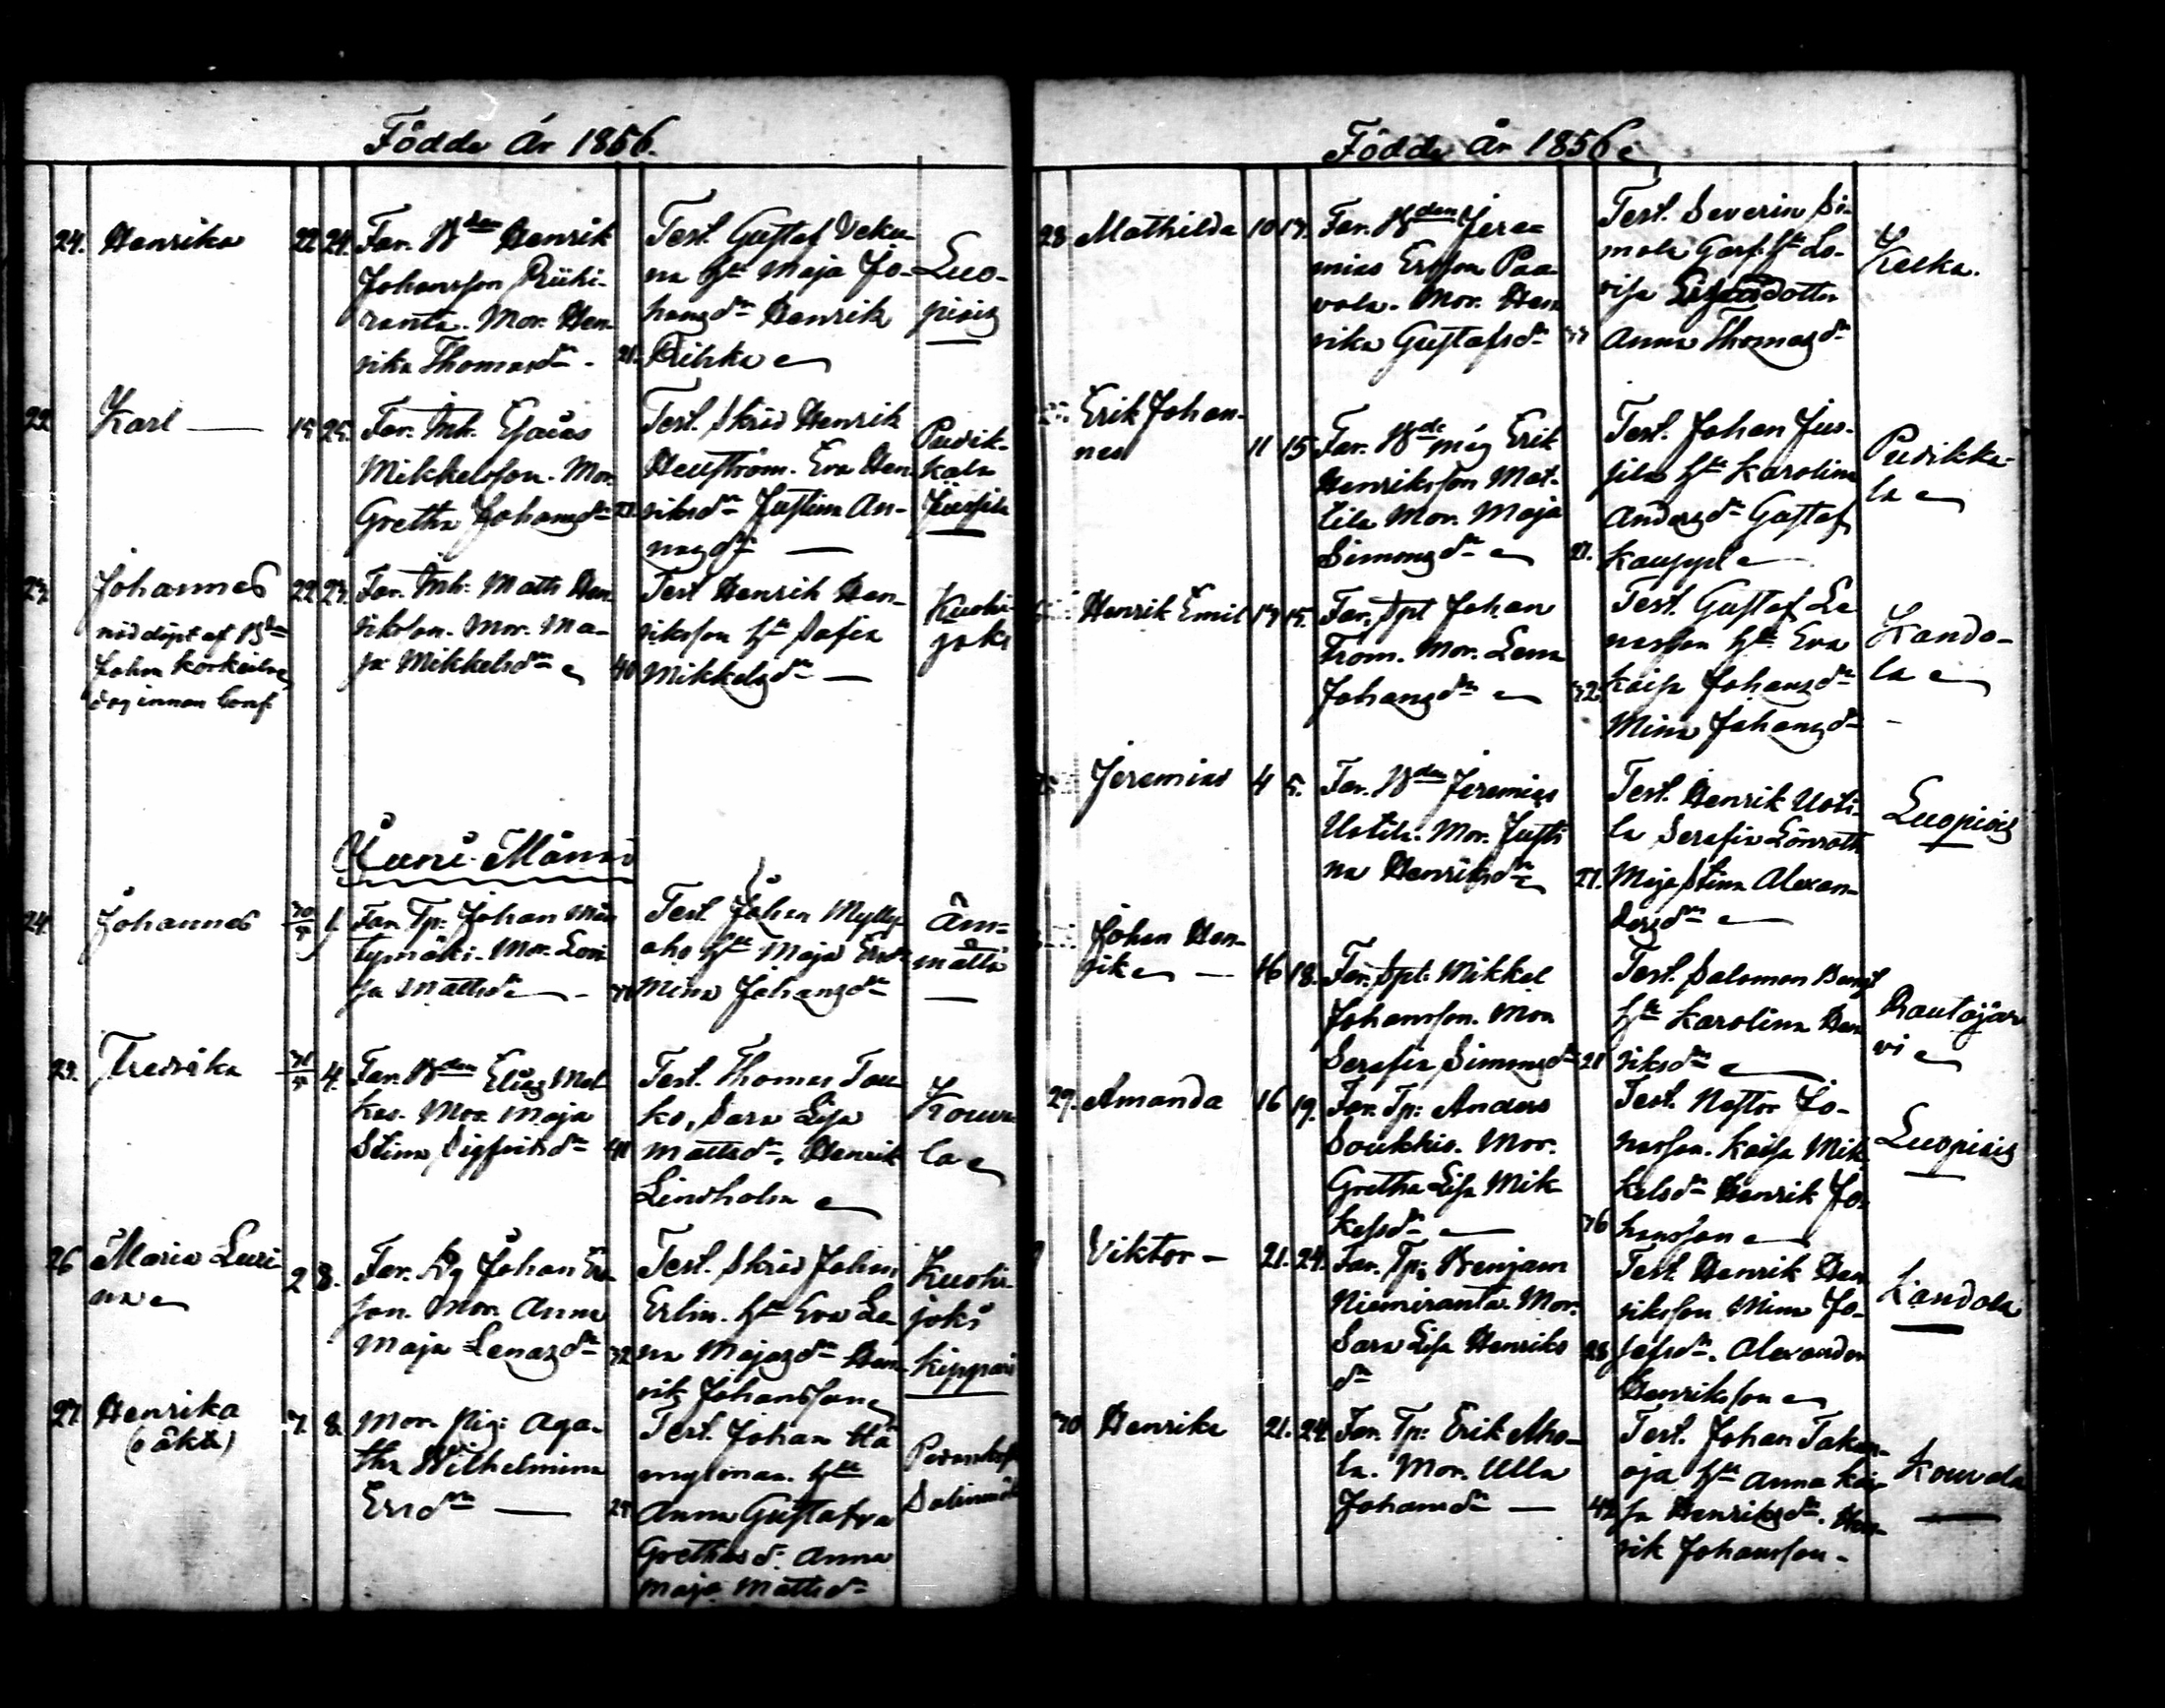 Födde År 1856.
24. Henrika 22. 24. Far. Bden Henrik
Johansson Riihi-
ranta. Mor. Hen-
rika Thomasdr. 21.
Test. Gustaf Veka-
na Hu Maja Jo-
hansdr Henrik
Luo-
piois
22. Karl 15 25. Far. Inh. Esaias
Mikkelsson. Mor
Gretha Johansdr 27.
Test. Skräd Henrik
Henström. Eva Hen-
riksdr Justina An-
Pudik-
kala
Jussila
Johannes 22. 27. Far. Inh. Matts Hen
riksson. Mor. Ma-
ja Mikkelsdr 40
nöddöpt af
Johan
Test Henrik Hen-
riksson Hu Sofia
Mikkelsdr
Kuohi-
joki
Juni Månad
24. Johannes 30/5 1. Far. Tp: Johan Män
tymäki. Mor. Lovi
sa Mattsdr
Test. Johan Mylly-
aho Hu Maja Ersdr
Mina Johansdr
Äm-
mättä
Fredrika 31/5 4. Far. Bden Elias Mat
kas. Mor. Maja
Stina Sigfridsdr 41
Test. Thomas Tau
ko, Sara Lisa
Mattsdr, Henrik
Lindholm
Kouva
la
26 Maria Lovi
sa 2 8. Far. Johan Ers
son. Mor. Anna
Maja Lenasdr 32
Test. Skräd Johan
Erlin. Hu Eva Le
na Majasdr Hen-
rik Johansson
Kuohi-
joki
Kippari
27. Henrika
(oäkta) 7. 8. Mor. Pig: Aga-
tha Wilhelmina
Ersdr
Test. Johan Hä
Hu
Anna Gustafva
Grethasdr. Anna
Maja Mattsdr
Födde År 1856
28 Mathilda 10 17. Far. Bden Jere-
mias Ersson Paa-
vola. Mor. Hen
rika Gustafsdr
Test. Severin Si-
mola Hu Lo-
visa
Anna Thomasdr
Kelka.
Erik Johan-
nes 11 15 Far. Bde måg Erik
Henriksson Mat-
tila Mor. Maja
Simonsdr 27.
Test. Johan Jus-
sila Hu Karolina
Andersdr Gustaf
Kauppi
Pudikka-
la
Henrik Emil 14 15. Far. Spt Johan
From. Mor. Lena
Johansdr 32.
Test. Gustaf Le
nasson Hu Eva
Kaisa Johansdr
Mina Johansdr
Kando-
la
Jeremias 4 5. Far. Bden Jeremias
Uotila. Mor. Justi
na Henriksdr 27.
Test. Henrik Uoti-
la Serafia Lönroth
Maja Stina Alexan-
dersdr
Luopiois
Johan Hen-
rik 16 18. Far. Spt. Mikkel
Johansson. Mor
Serafia Simonsdr 28
Test. Salomon Bengt
Hu Karolina Hen
riksdr
Rautajär
vi
29. Amanda 16 19. Far. Tp: Anders
Soukkio. Mor.
Gretha Lisa Mik
kelsdr 36
Test. Nestor Jo-
nasson. Kaisa Mik
kelsdr Henrik Jo-
hansson
Luopiois
Viktor 21. 24. Far. Tp: Benjam
Niemiranta. Mor.
Sara Lisa Henriks
dr 28
Test. Henrik Hen
riksson Mina Jo-
sefsdr. Alexander
Henriksson
Kandola
30 Henrika 21. 24. Far. Tp: Erik Aho-
la. Mor. Ulla
Johansdr
Test. Johan Taka-
oja Hu Anna Kai
sa Henriksdr. Hen-
rik Johansson
Kouvala